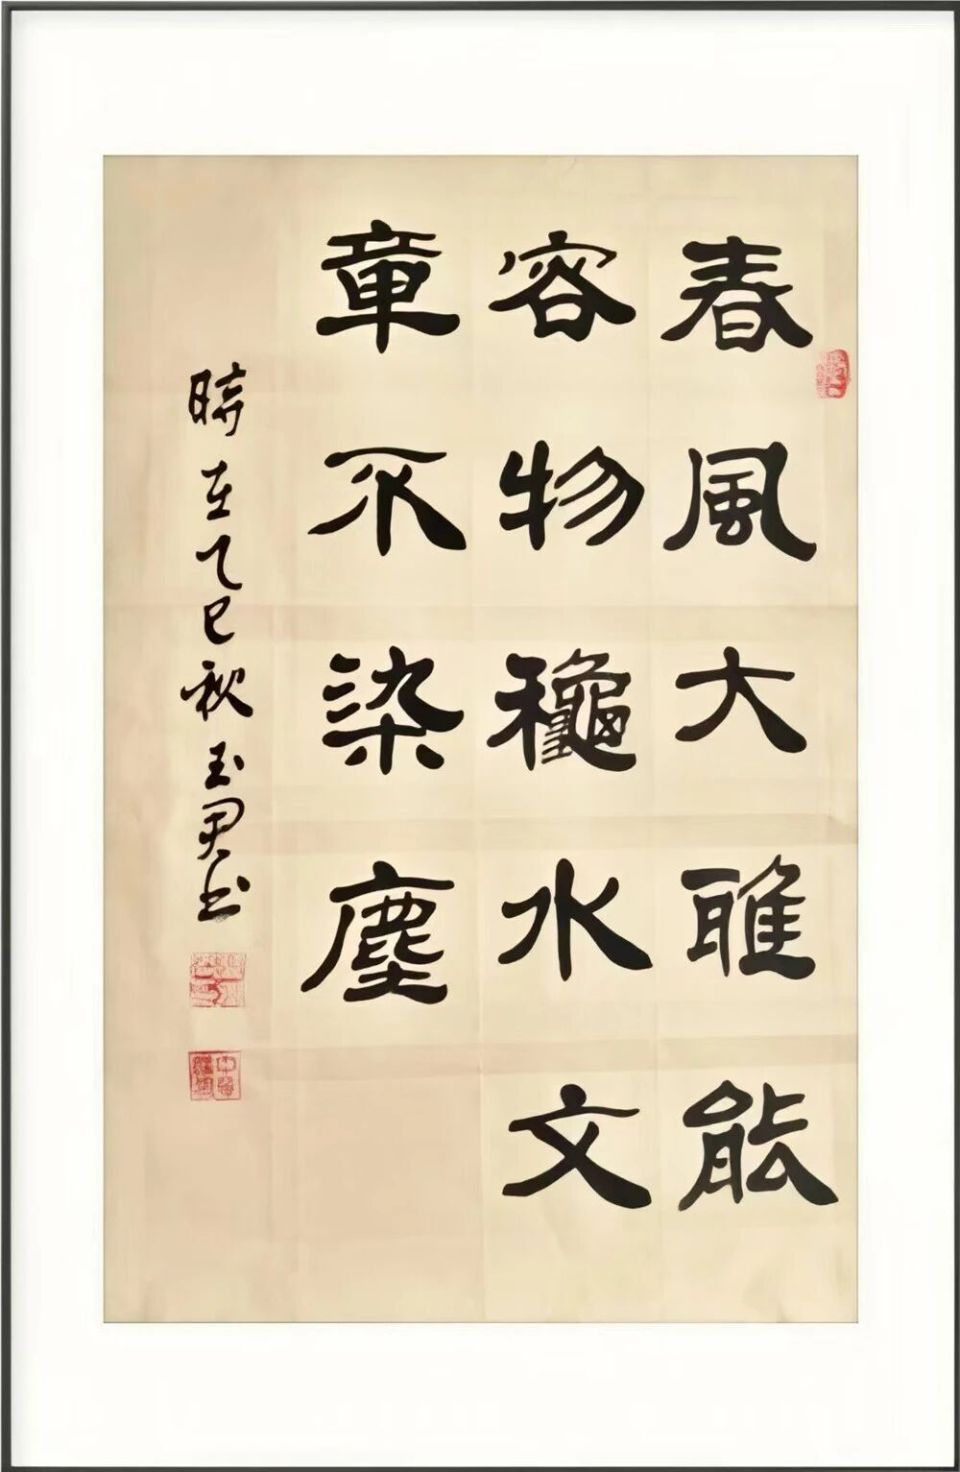 春風大雅能
容物龝水文
章不染塵
時在乙巳秋玉君书